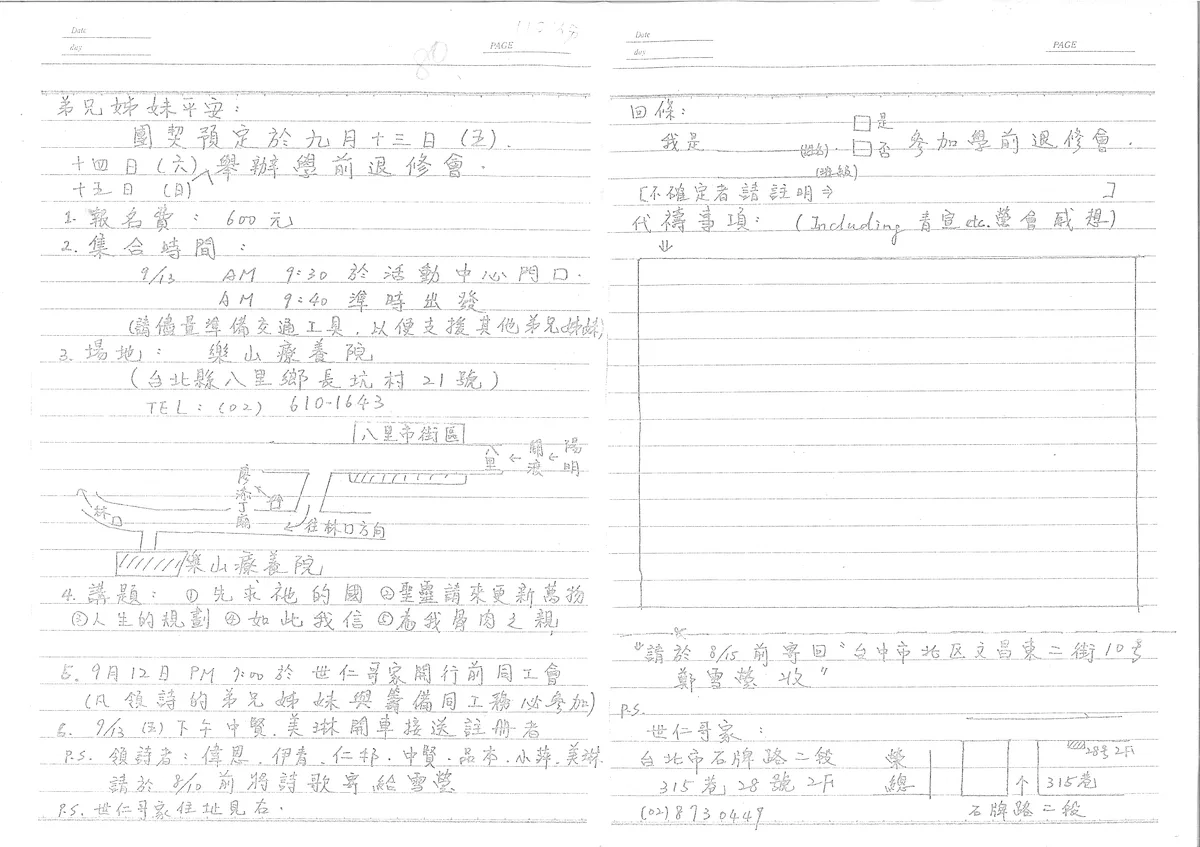 Date
day
PAGE
弟兄姊妹平安:
團契預定於九月十三日(五).
十四日(六) 舉辦學前退修會.
十五日 (日)
1. 報名費: 600元
2. 集合時間:
9/13 AM 9:30 於活動中心門口.
AM 9:40 準時出發
(請儘量準備交通工具, 以便支援其他弟兄姊妹)
3. 場地: 樂山療養院
(台北縣八里鄉長坑村21號)
TEL: (02) 610-1643
八里市街區
八里 ← 關渡 ← 陽明
廖添丁廟
林口
往林口方向
樂山療養院
4. 講題: ①先求祂的國 ②聖靈請來更新萬物
③人生的規劃 ④如此我信 ⑤為我骨肉之親
5. 9月12日 PM 7:00於 世仁哥家開行前同工會
(凡領詩的弟兄姊妹與籌備同工務必參加)
6. 9/13 (五)下午中賢.美琳開車接送註冊者
P.S. 領詩者: 偉恩.伊青.仁邦.中賢.品本.小萍.美琳.
請於 8/10 前將詩歌寄給雪螢
P.S. 世仁哥家住址見右.
Date
day
PAGE
回條:
我是 (姓名). □是 □否 參加學前退修會.
(班級)
[不確定者請註明⇒ ]
代禱事項: (Including 青宣etc.營會感想)
⇓
請於 8/15 前寄回"台中市北区文昌東二街10号
鄭雪螢 收"
P.S.
世仁哥家:
台北市石牌路二段
315巷28號2F
(02)8730447
榮總
28号2F
315巷
石牌路二段